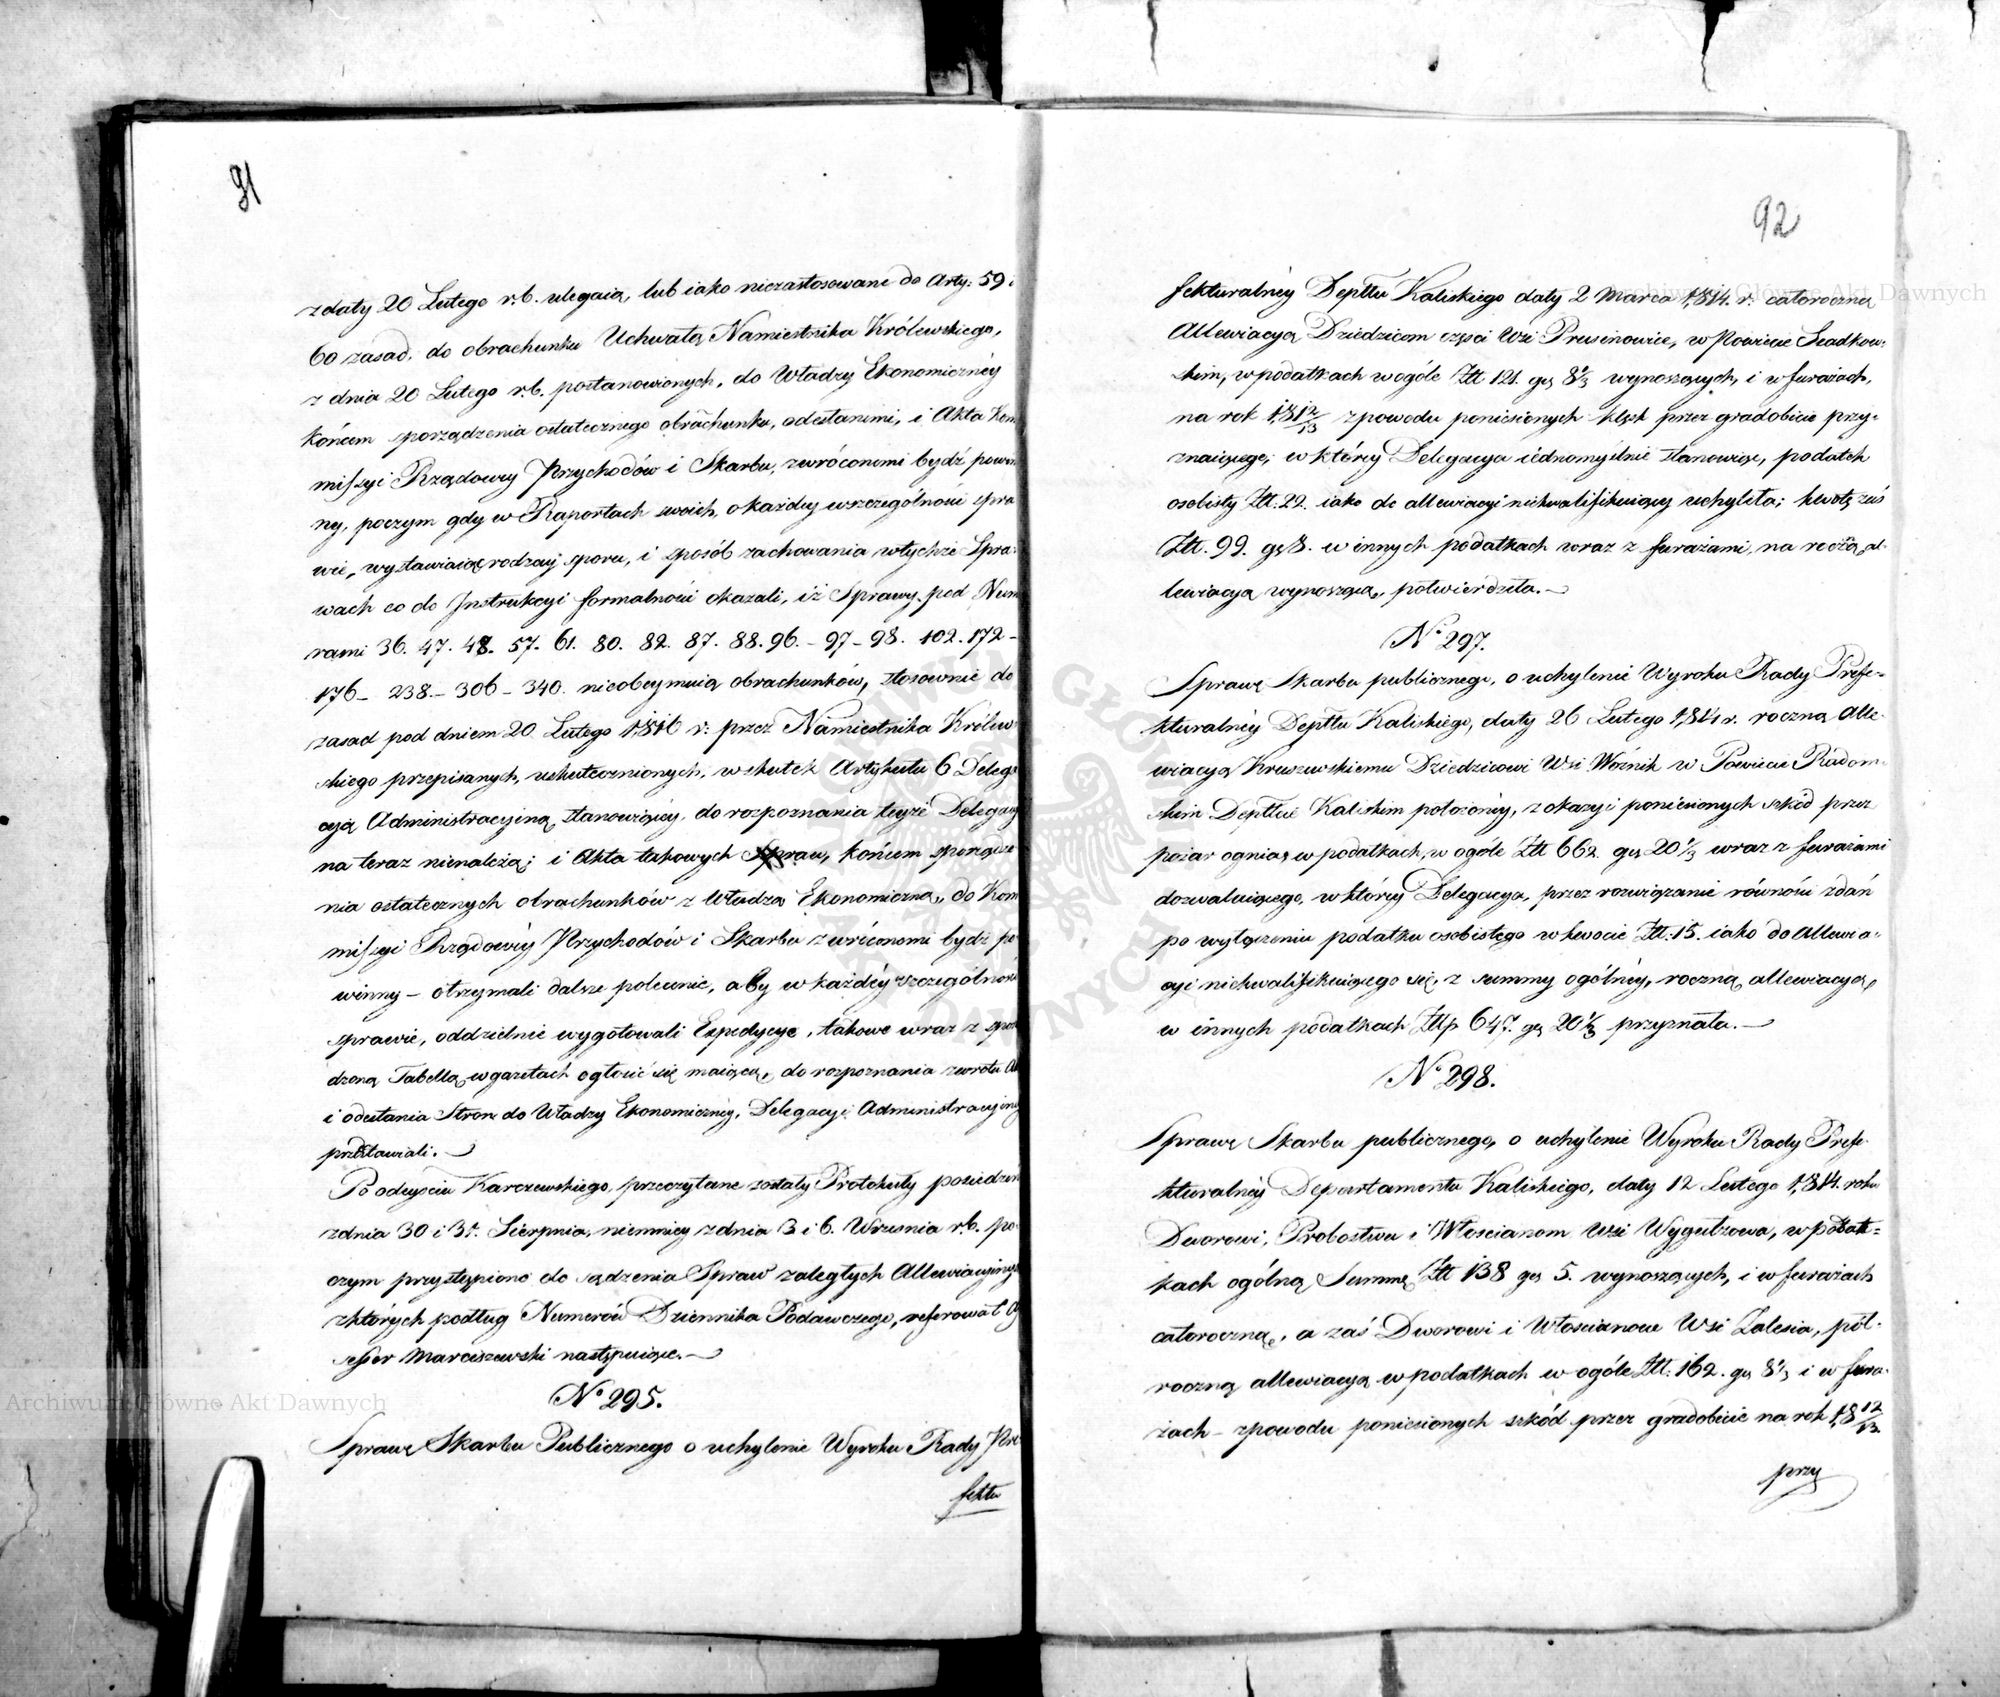 91
z daty 20 Lutego r.b. ulegaią, lub iako niezastosowane do Arty: 59 i
60 zasad, do obrachunku Uchwałą Namiestnika Królewskiego,
z dnia 20 Lutego r.b. postanowionych, do Władzy Ekonomicznéy
końcem sporządzenia ostatecznego obrachunku, odesłanemi, i Akta Kom
missyi Rządowéy Przychodów i Skarbu, zwróconemi bydź powin
ny, poczym gdy w Raportach swoich, o każdéy wszczególności spra
wie, wystawiaiąc rodzay sporu, i sposób zachowania wtychże Spra-
wach co do Instrukcyi formalności okazali, iż Sprawy pod Num
rami 36. 47. 48. 57. 61. 80. 82. 87. 88. 96. – 97 – 98. 102. 172 –
176 – 238. – 306 – 340. nieobeymuią obrachunków, stosownie do
zasad pod dniem 20 Lutego 1816 r: przez Namiestnika Królew
skiego przepisanych, uskutecznionych, w skutek Artykułu 6 Delega
cyą Administracyiną stanowiącéy, do rozpoznania teyże Delegacyi
na teraz nienależą; i Akta takowych Spraw, końcem sporządze
nia ostatecznych obrachunków z Władzą Ekonomiczną, do Kom
missyi Rządowéy Przychodów i Skarbu zwróconemi bydź po
winny – otrzymali dalsze polecenie, aby w każdéy szczególności
sprawie, oddzielnie wygotowali Expedycye, takowe wraz z spo
dzoną Tabellą w gazetach ogłosić się maiącą, do rozpoznania zwrotu Akt
i odesłania Stron do Władzy Ekonomicznéy, Delegacyi Administracyiney
przedstawiali. –
Po odeyściu Karczewskiego, przeczytane zostały Protokuły posiedzeń
z dnia 30 i 31. Sierpnia, niemniey z dnia 3 i 6. Września r.b. po
czym przystąpiono do sądzenia Spraw zaległych Allewiacyinych
z których podług Numerów Dziennika Podawczego, referował As
sessor Marciszewski następuiące. –
No 295.
Sprawę Skarbu Publicznego o uchylenie Wyroku Rady Pre
fektu
92
fekturalnéy Depttu Kaliskiego daty 2 Marca 1814. r: całoroczną
Allewiacyą Dziedzicom części Wsi Prusinowice, w Powiecie Szadkow-
skim, w podatkach w ogóle Złł 121. gs 8⅓ wynoszących, i w furażach,
na rok 1812/13 z powodu poniesionych klęsk przez gradobicie przy-
znaiącego; w któréy Delegacya iednomyślnie stanowiąc, podatek
osobisty Złł. 22. iako do allewiacyi niekwalifikuiący uchyliła; kwotę zaś
Złł. 99. gs 8. w innych podatkach wraz z furażami, na roczną al-
lewiacyą wynoszącą, potwierdziła. –
No 297.
Sprawę Skarbu publicznego, o uchylenie Wyroku Rady Prefe-
kturalnéy Depttu Kaliskiego, daty 26 Lutego 1814 r. roczną Alle-
wiacyą Kruszewskiemu Dziedzicowi Wsi Woźnik w Powiecie Radom-
skim Deptcie Kaliskim położonéy, z okazyi poniesionych szkód przez
pożar ognia, w podatkach, w ogóle Złł 662. gs 20⅓ wraz z furażami
dozwalaiącego, w któréy Delegacya, przez rozwiązanie równości zdań
po wyłączeniu podatku osobistego w kwocie Złł. 15. iako do Allewia-
cyi niekwalifikuiącego się, z summy ogólnéy, roczną allewiacyą,
w innych podatkach Złłp 647. gs 20⅓ przyznała. –
No 298.
Sprawę Skarbu publicznego, o uchylenie Wyroku Rady Prefe-
kturalnéy Departamentu Kaliskiego, daty 12 Lutego 1814. roku
Dworowi, Probostwu i Włościanom Wsi Wygiełzowa, w podat-
kach ogólną Summę Złł 138 gs 5. wynoszących, i w furażach
całoroczną, a zaś Dworowi i Włościanom Wsi Zalesia, pół-
roczną allewiacyą w podatkach w ogóle Złł. 162. gs 8⅓ i w fura-
żach – z powodu poniesionych szkód przez gradobicie na rok 1812/13.
przy
Archiwum Główne Akt Dawnych